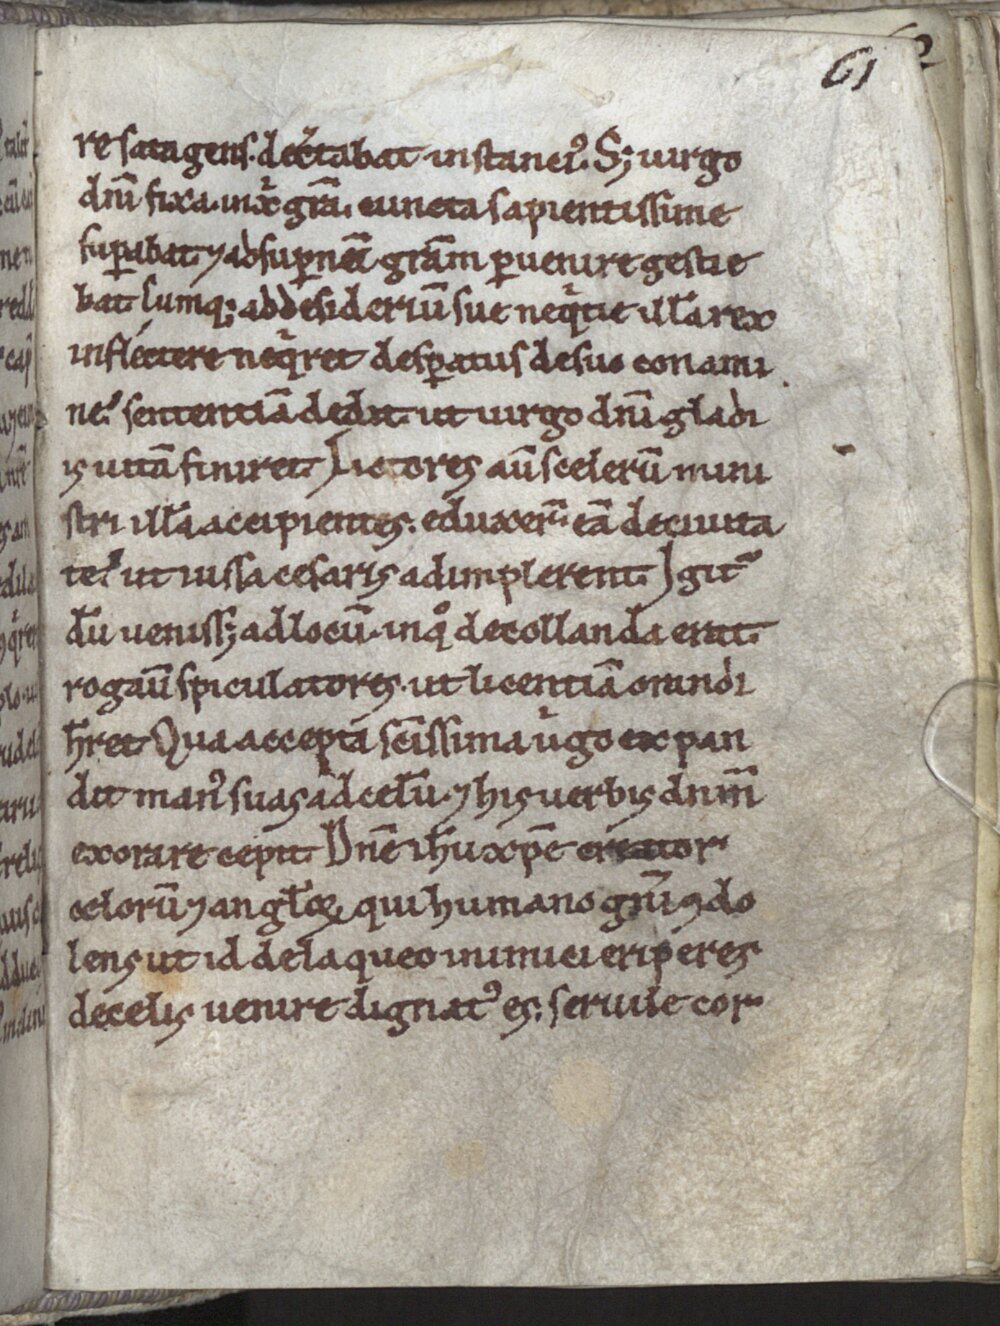 61
re satagens. dećtabat instanciꝰ. S; uirgo
dnī fixa. in xp̄i grā. cuncta sapientissime
sup̄abat ⁊ ad sup̄nēā grām p̄uenire gestie
bat Cumq; ad desideriū sue neqͥtie illā rex
inflectere neqͥret desp̄atus de suo conami
ne. sententiā dedit. ut uirgo dnī gladi
is uitā finiret. Lictores aū scelerū mini
stri illā accipientes. eduxer̄. eā de ciuita
te. ut iussa cesaris adimplerent. Igit᷑
dū ueniss; ad locū. in qͦ decollanda erat.
rogaū spiculatores. ut licentiā orandi
h̄ret Qua accepta sc̄issima uͥgo expan
dit manꝰ suas ad celū. ⁊ his uerbis dnm̄
exorare cepit. Dnē ih̄u xp̄e creator
celorū ⁊ angl̄oꝝ, qui humano gn̄i ꝯdo
lens ut id de laqueo inimici eriperes
de celis uenire dignatꝰ es. seruile cor